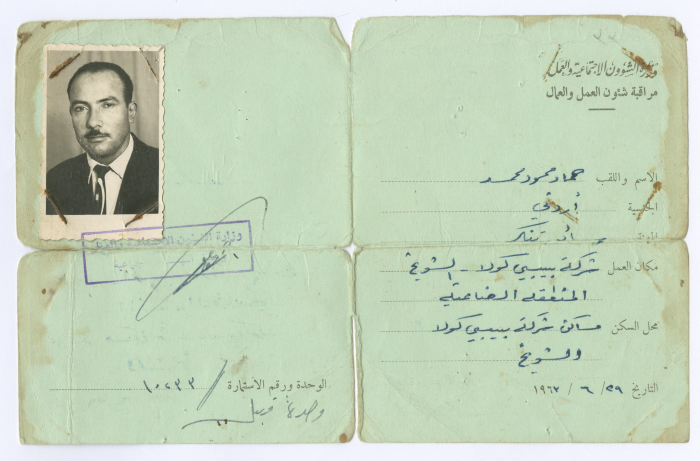 وزارة الشؤون الاجتماعية والعمل
مراقبة شئون العمل والعمال
الاسم واللقب حماد محمود محمد
الجنسية أردني
المهنة
مكان العمل شركة بيبسي كولا - الشويخ
المنطقة الصناعية
محل السكن مساكن شركة بيبسي كولا
الشويخ
التاريخ ٢٩/ ٦ / ١٩٦٧
وزارة
الوحدة ورقم الاستمارة / ١٠٢٣٣
وحدة